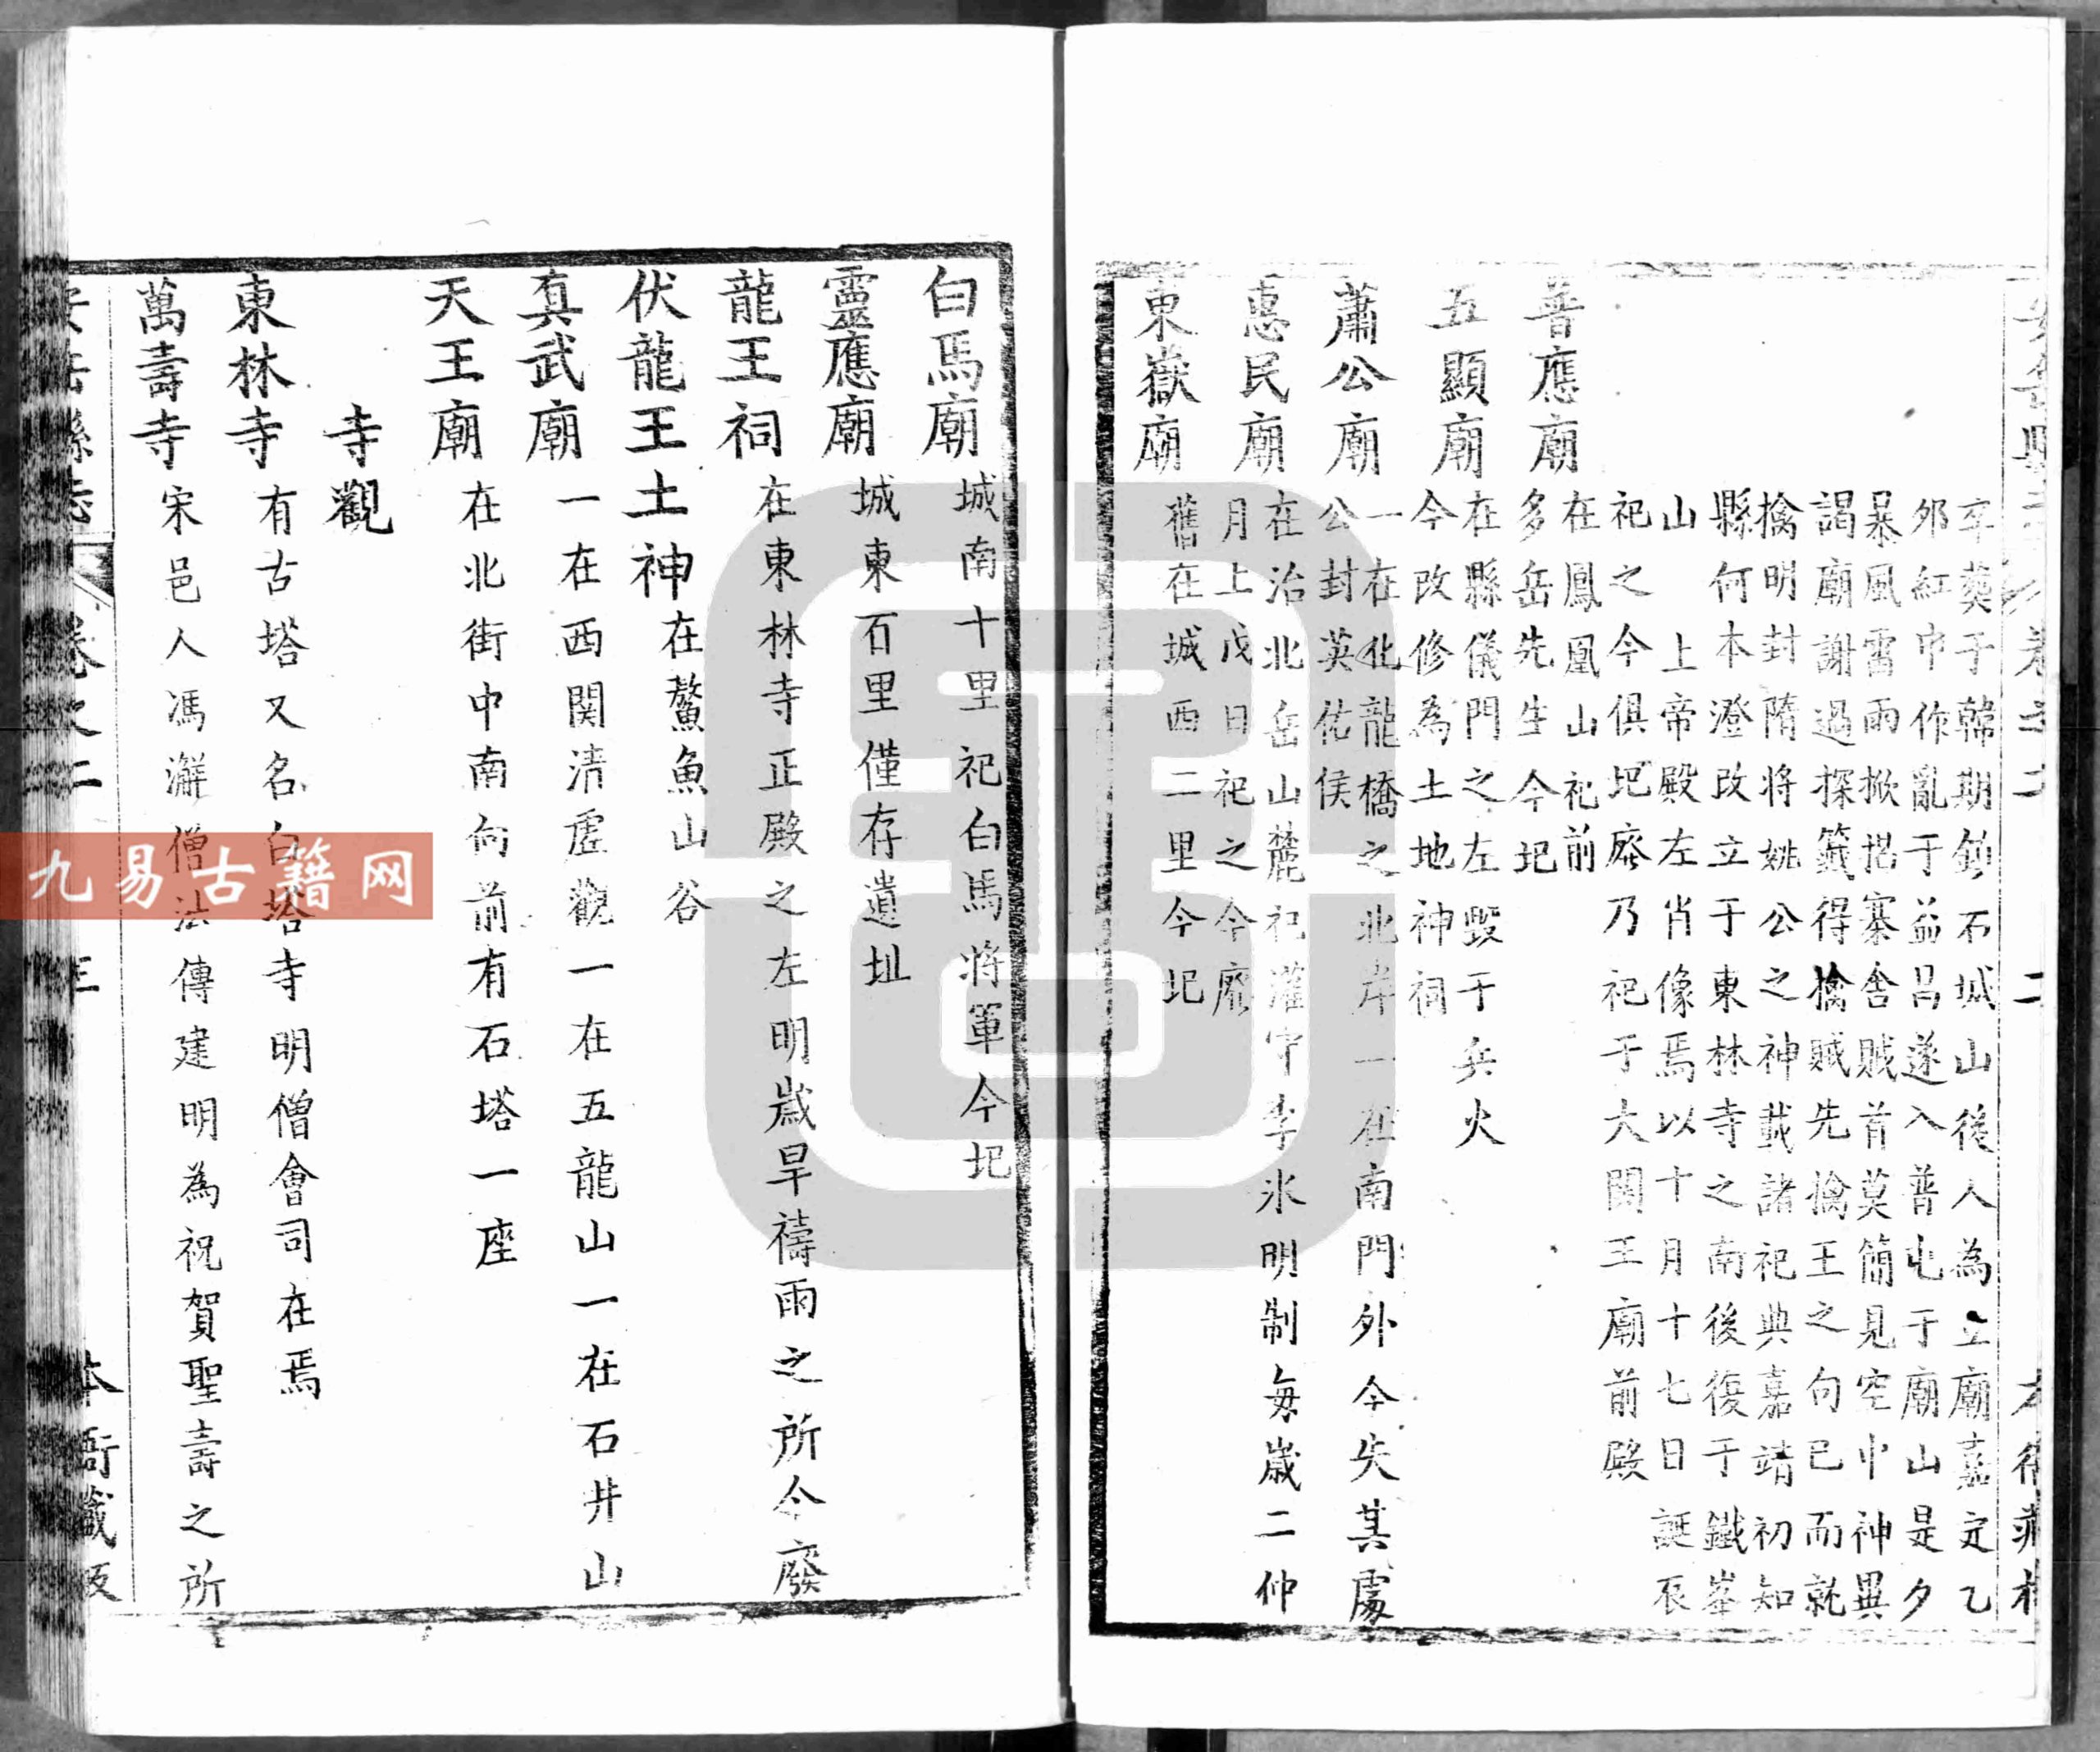 卒葬于韓期鎮石城山後人為立廟嘉定乙
邜紅巾作亂于益昌遂入普屯于廟山是夕
暴風雷雨掀揩寨舍賊首莫簡見空中神異
謁廟謝過探籤得擒賊先擒王之句已而就
擒明封隋將姚公之神載諸祀典嘉靖初知
縣何本澄改立于東林寺之南後復于鐵峯
山 上帝殿左肖像焉以十月十七日誕辰
祀之今俱圯廢乃祀于大關王廟前殿
普應廟 在鳳凰山祀前
多岳先生今圯
五顯廟 在縣儀門之左毀于兵火
今改修為土地神祠
蕭公廟 一在化龍橋之北岸一在南門外今失其處
公封英佑侯
惠民廟 在治北岳山麓祀灌守李氷明制每歲二仲
月上戊日祀之今廢
東嶽廟 舊在城西二里今圯
白馬廟 城南十里祀白馬將軍今圯
靈應廟 城東百里僅存遺址
龍王祠 在東林寺正殿之左明歲旱禱雨之所今廢
伏龍王土神 在鰲魚山谷
真武廟 一在西関清虛觀一在五龍山一在石井山
天王廟 在北街中南向前有石塔一座
寺觀
東林寺 有古塔又名白塔寺明僧會司在焉
萬壽寺 宋邑人馮澥僧法傳建明為祝賀聖壽之所
安岳縣志 卷之二 三 本衙藏板
九易古籍网